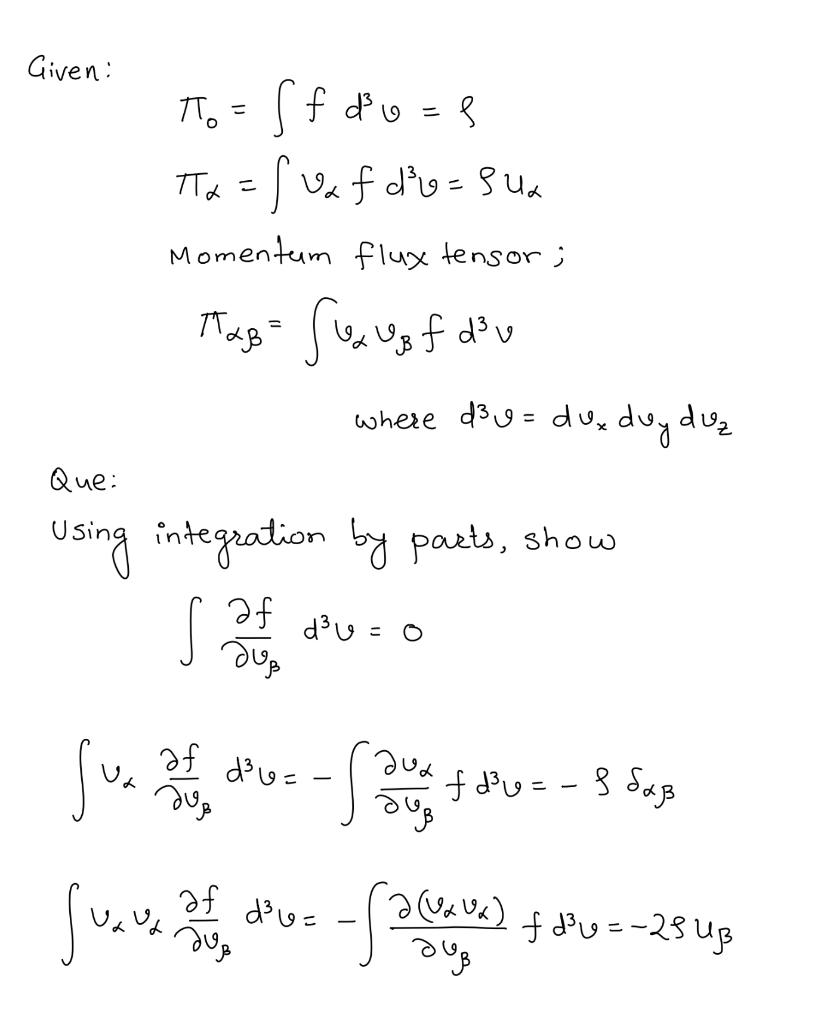 Given:
π₀ = ∫ f d³v = ρ
π_α = ∫ v_α f d³v = ρ u_α
Momentum flux tensor ;
π_αβ = ∫ v_α v_β f d³v
where d³v = dv_x dv_y dv_z
Que:
Using integration by parts, show
∫ ∂f/∂v_β d³v = 0
∫ v_α ∂f/∂v_β d³v = - ∫ ∂v_α/∂v_β f d³v = - ρ δ_αβ
∫ v_α v_α ∂f/∂v_β d³v = - ∫ ∂(v_α v_α)/∂v_β f d³v = -2ρ u_β